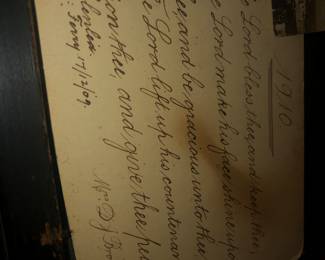 1910
Lord bless thee and keep thee,
Lord make his face shine upo
ee, and be gracious unto thee
Lord lift up his countenan
on thee, and give thee pe
Mrs D
Ferry 17/12/09.